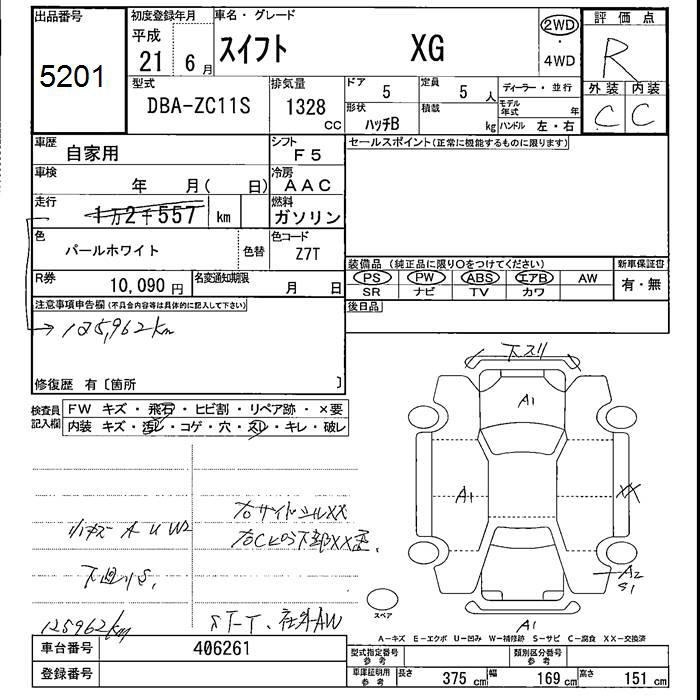 出品番号 初度登録年月 車名・グレード 2WD 評価点
5201 平成 21 6月 スイフト XG 4WD R
型式 排気量 ドア 5 定員 5人 ディーラー・並行 外装 内装
DBA-ZC11S 1328 CC 形状 ハッチB 積載 kg モデル年式 年 C C
ハンドル 左・右
車歴 自家用 シフト F5 セールスポイント(正常に機能するものに限ります)
車検 年 月( 日) 冷房 AAC
走行 1万2千557 km 燃料 ガソリン
色 パールホワイト 色替 色コード Z7T
装備品 (純正品に限り○をつけてください) 新車保証書
R券 10,090円 名変通知期限 月 日 PS PW ABS エアB AW 有・無
SR ナビ TV カワ
注意事項申告欄(不具合内容等は具体的に記入して下さい) 後日品
→125,962km
修復歴 有〔箇所 〕
下スリ
A1
検査員記入欄 FW キズ・飛石・ヒビ割・リペア跡・×要
内装 キズ・汚レ・コゲ・穴・スレ・キレ・破レ
A1 XX
右サイドシルXX
小キズ A U W2
下廻りS,
A2
S1
スペア
125962km
社外AW
A1
A-キズ E-エクボ U-凹み W-補修跡 S-サビ C-腐食 XX-交換済
車台番号 406261
型式指定番号 参考 類別区分番号 参考
登録番号
車庫証明用 参考 長さ 375 cm 幅 169 cm 高さ 151 cm